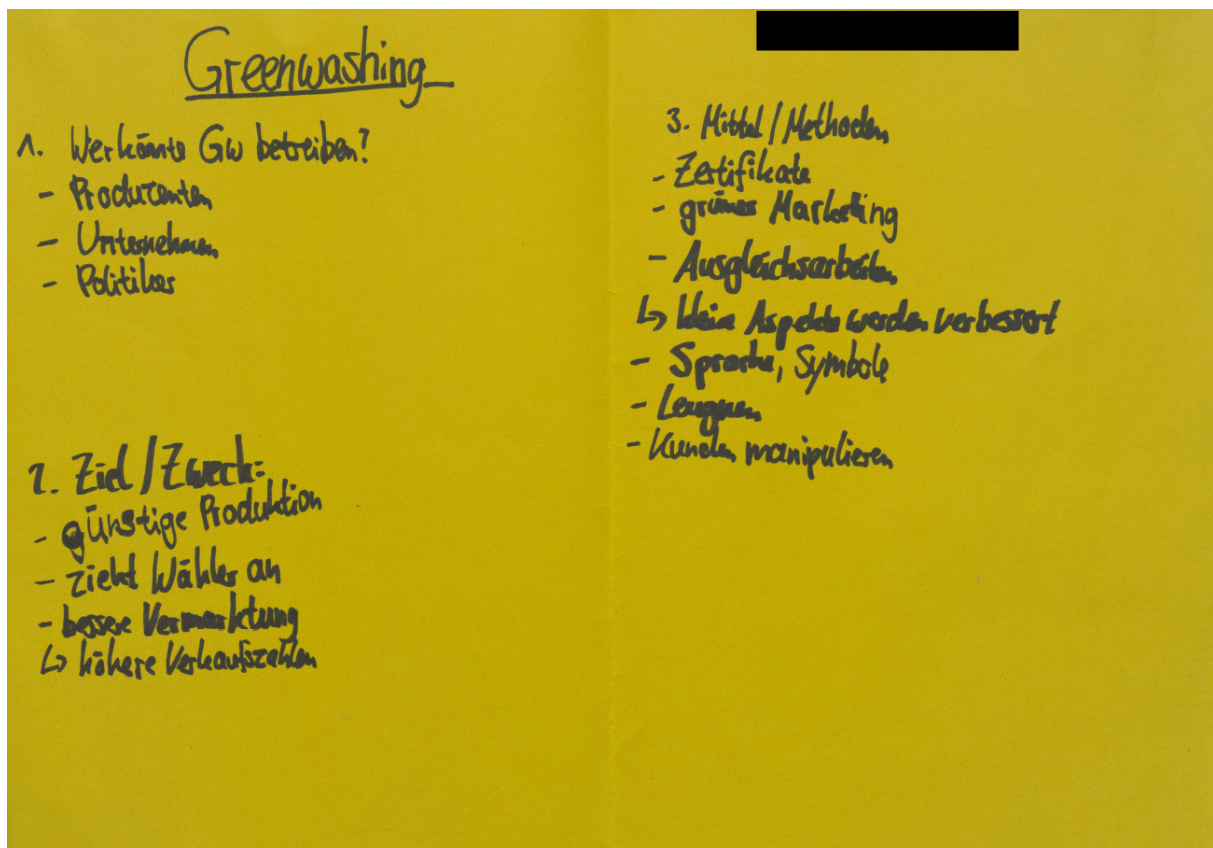 Greenwashing
1. Wer könnte Gw betreiben?
- Producenten
- Unternehmen
- Politiker
2. Ziel / Zweck:
- günstige Produktion
- zieht Wähler an
- bessere Vermarktung
↳ höhere Verkaufszahlen
3. Mittel / Methoden
- Zertifikate
- grünes Marketing
- Ausgleichsarbeiten
↳ kleine Aspekte werden verbessert
- Sprache, Symbole
- Leugnen
- Kunden manipulieren